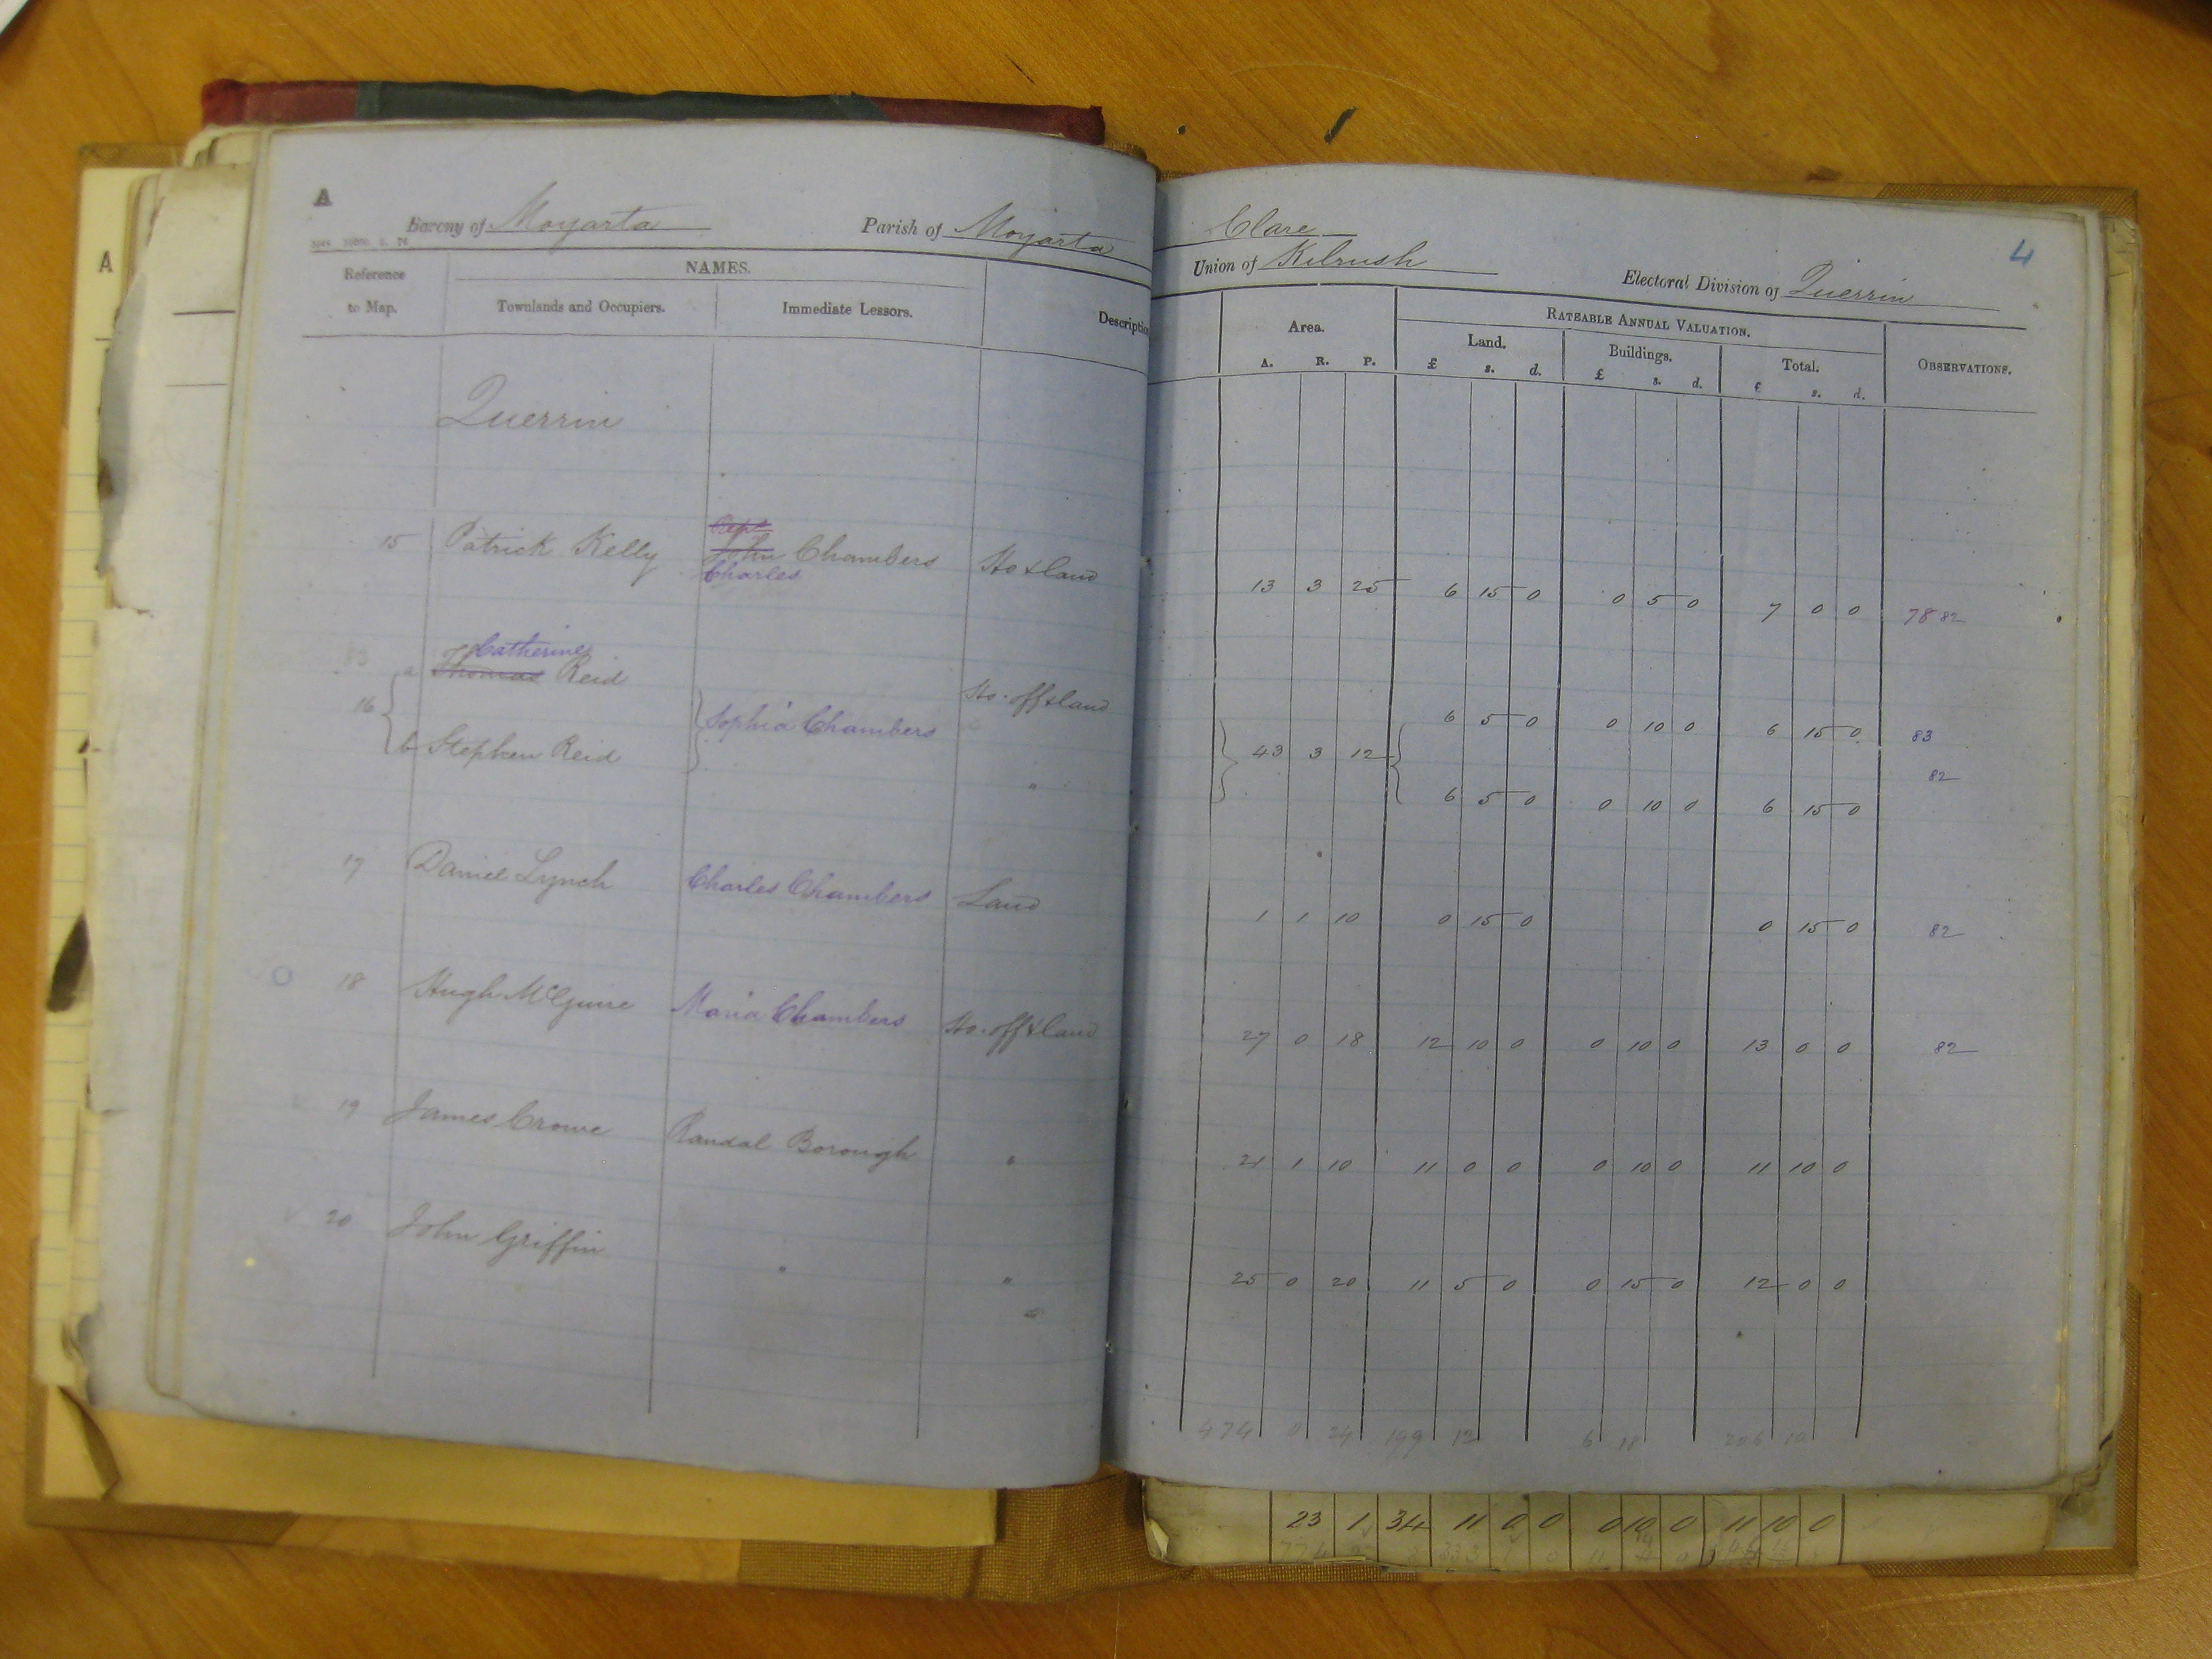 A
Barony of Moyarta Parish of Moyarta
Reference to Map. NAMES. Description
Townlands and Occupiers. Immediate Lessors.
Querrin
Capt
15 Patrick Kelly John Chambers Ho & land
Charles
Catherine
a Thomas Reid Ho. off & land
16 Sophia Chambers
b Stephen Reid "
17 Daniel Lynch Charles Chambers Land
18 Hugh McGuire Maria Chambers Ho. off & land
19 James Crowe Randal Borough "
20 John Griffin " "
A
Clare
4
Union of Kilrush Electoral Division of Querrin
Area. RATEABLE ANNUAL VALUATION. OBSERVATIONS.
Land. Buildings. Total.
A. R. P. £ s. d. £ s. d. £ s. d.
13 3 25 6 15 0 0 5 0 7 0 0 78 82
6 5 0 0 10 0 6 15 0 83
43 3 12 82
6 5 0 0 10 0 6 15 0
1 1 10 0 15 0 0 15 0 82
27 0 18 12 10 0 0 10 0 13 0 0 82
21 1 10 11 0 0 0 10 0 11 10 0
25 0 20 11 5 0 0 15 0 12 0 0
474 0 24 199 12 6 18 206 10
23 1 34 11 0 0 0 10 0 11 10 0